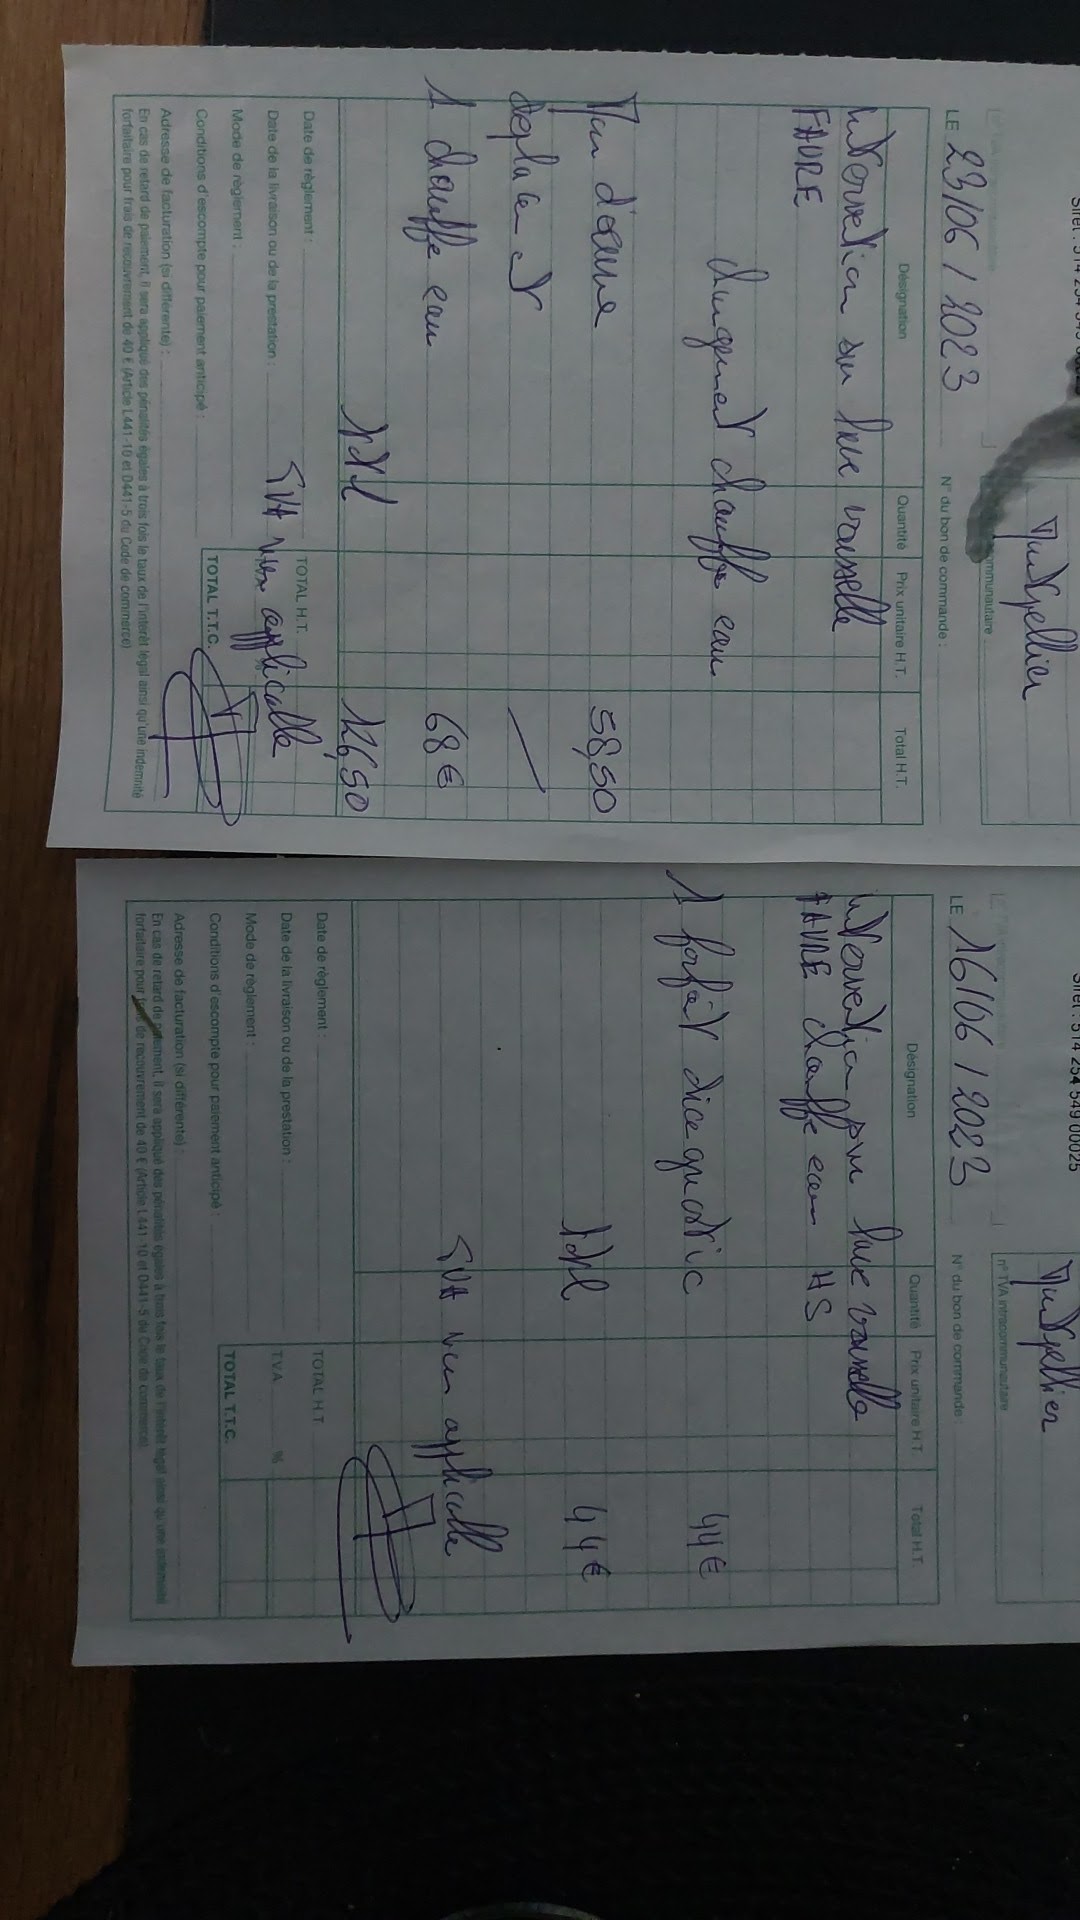 Montpellier
LE 23/06/2023
N° du bon de commande :
Désignation
Quantité
Prix unitaire H.T.
Total H.T.
intervention sur lave vaisselle
FAURE
changement chauffe eau
Main d'œuvre 58,50
deplacet
1 chauffe eau 68€
total 126,50
Date de règlement :
TOTAL H.T.
Date de la livraison ou de la prestation :
TVA non applicable
Mode de règlement :
Conditions d'escompte pour paiement anticipé :
TOTAL T.T.C.
Adresse de facturation (si différente) :
En cas de retard de paiement, il sera appliqué des pénalités égales à trois fois le taux de l'intérêt légal ainsi qu'une indemnité
forfaitaire pour frais de recouvrement de 40 € (Article L441-10 et D441-5 du Code de commerce)
Siret : 514 254 549 00025
Montpellier
n° TVA intracommunautaire
LE 16/06/2023
N° du bon de commande :
Désignation
Quantité
Prix unitaire H.T.
Total H.T.
intervention sur lave vaisselle
FAURE chauffe eau HS
1 forfait diagnostic 44€
total 44€
TVA non applicable
Date de règlement :
TOTAL H.T
Date de la livraison ou de la prestation :
T.V.A %
Mode de règlement :
Conditions d'escompte pour paiement anticipé :
TOTAL T.T.C.
Adresse de facturation (si différente) :
En cas de retard de paiement, il sera appliqué des pénalités égales à trois fois le taux de l'intérêt légal ainsi qu'une indemnité
forfaitaire pour frais de recouvrement de 40 € (Article L441-10 et D441-5 du Code de commerce)